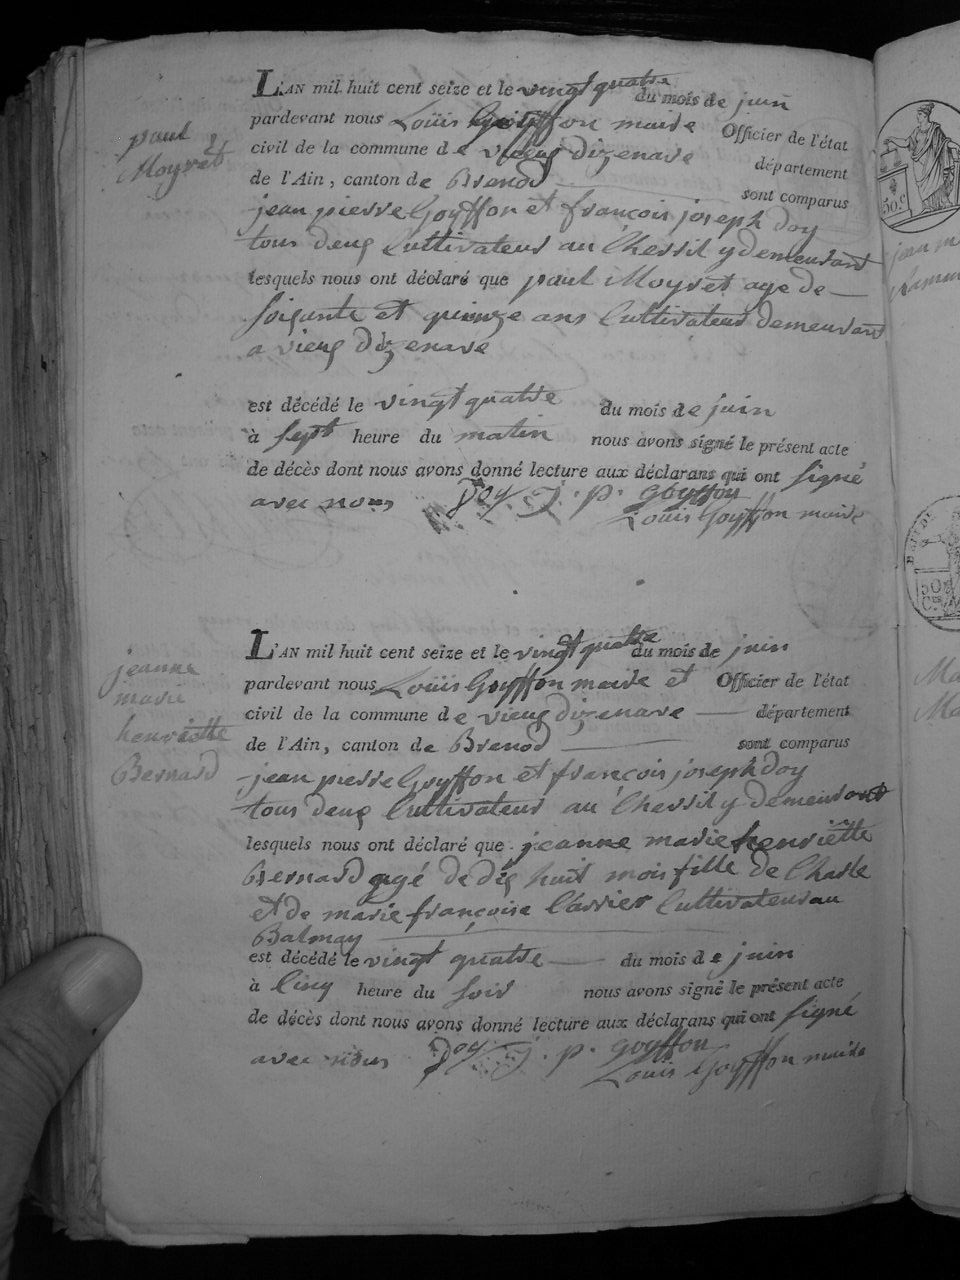 paul
Moyret
L'AN mil huit cent seize et le vingt quatre du mois de juin
pardevant nous Louis Goyffon maire Officier de l'état
civil de la commune de vieux dizenave département
de l'Ain, canton de Brenod sont comparus
jean pierre Goyffon et françois joseph doy
tous deux Cultivateur au Chessil y demeurant
lesquels nous ont déclaré que paul Moyret age de
soixante et quinze ans Cultivateur demeurant
a vieux dizenave
est décédé le vingt quatre du mois de juin
à sept heure du matin nous avons signé le présent acte
de décès dont nous avons donné lecture aux déclarans qui ont signé
avec nous Doy J. p. goyffon
Louis Goyffon maire
jeanne
marie
henriette
Bernard
L'AN mil huit cent seize et le vingt quatre du mois de juin
pardevant nous Louis Goyffon maire et Officier de l'état
civil de la commune de vieux dizenave département
de l'Ain, canton de Brenod sont comparus
jean pierre Goyffon et françois joseph doy
tous deux Cultivateur au Chessil y demeurant
lesquels nous ont déclaré que jeanne marie henriette
Bernard agé de dix huit mois fille de Charle
et de marie françoise Carrier Cultivateur au
Balmay
est décédé le vingt quatre du mois de juin
à Cinq heure du soir nous avons signé le présent acte
de décès dont nous avons donné lecture aux déclarans qui ont signé
avec nous Doy J. p. goyffon
Louis Goyffon maire
50 c
jean
50
Ma
Ma